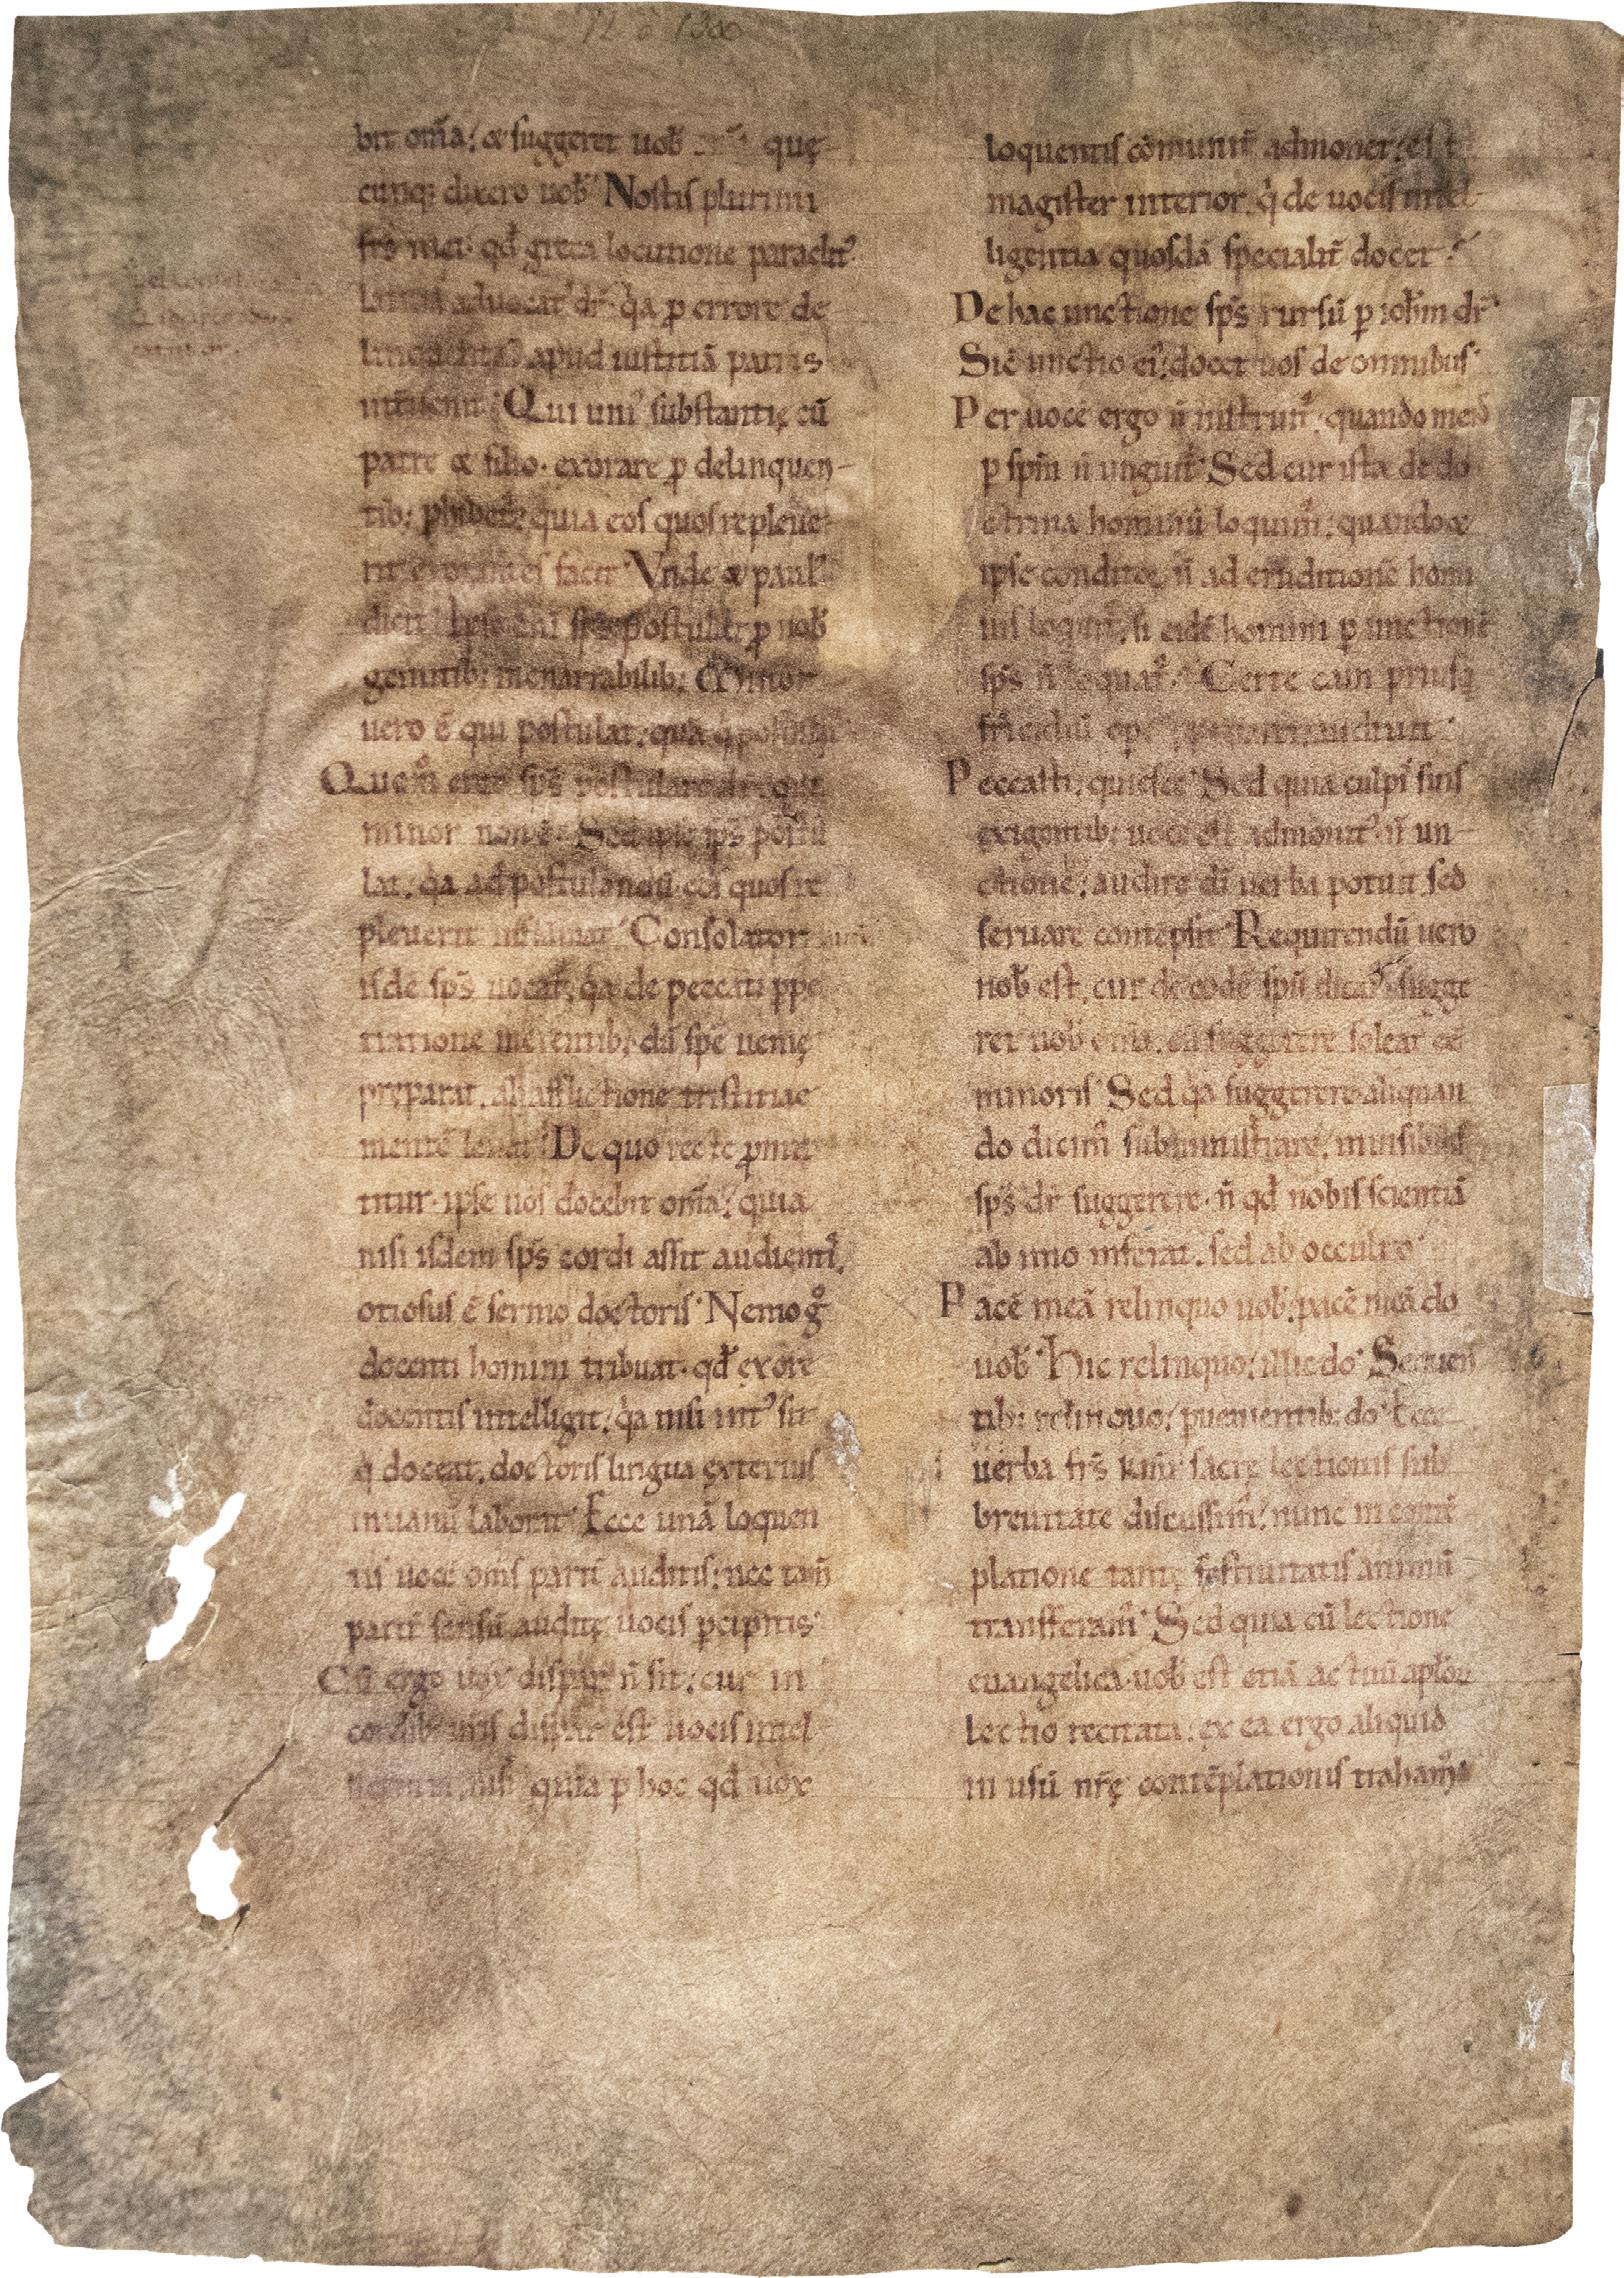 bit om̄a; & suggeret uob̄ quę-
cunq; dixero uob̄ Nostis plurimi
fr̄s mei· qd̄ greca locutione paraclit᾽
latina aduocat᾽ dr̄· q̇a ꝑ errore de
apud iustitiā patris
Qui uni᾽ substantię cū
patre & filio· exorare ꝑ delinquen-
tib; ꝑhibet᾽; quia eos quos repleue-
rit exorantes facit Vnde & paul᾽
dicit eni sp̄s postulat ꝑ nob̄
gemitib; inenarrabilib; Minor
uero ē qui postulat; quā q̇
Quom̊ ergo sp̄s postulare dr̄ qui
minor non ē· Sed ipse sp̄s postu
lat; q̇a ad postulandū eos quos re
pleuerit inflāmat Consolator
isdē sp̄s uocat᾽; q̇a de peccati ꝑpe
tratione merentib; dū spē uenię
pręparat, ab afflictione tristitiae
mentē leuat De quo recte ꝓmit
titur· ipse uos docebit om̄a; quia
nisi isdem sp̄s cordi assit audient᾽,
otiosus ē sermo doctoris Nemo g̊
docenti homini tribuat· qd̄ ex ore
docentis intelligit; q̇a nisi int᾽ sit
q̇ doceat, doctoris lingua exterius
in uanū laborat Ecce unā loquen
tis uocē om̄s parit̄ auditis; nec tam̄
parit̄ sensū auditę uocis ꝑcipitis
Cū ergo uox dispar n̄ sit; cur in
cordib; ur̄is dispar est uocis intel
quia ꝑ hoc qd̄ uox
loquentis cōmunit̄ admonet; est
magister interior, q̇ de uocis intel-
ligentia quosdā specialit̄ docet
De hac unctione sp̄s rursū ꝑ ioh̄m dr̄
Sic̄ unctio ei᾽ docet uos de omnibus
Per uocē ergo n̄ instruit᾽, quando mens
ꝑ sp̄m n̄ ungit᾽ Sed cur ista de do
ctrina hominū loquim̄; quando &
ipse conditor n̄ ad eruditionē homi
nis loquit᾽, si eidē homini ꝑ unctionē
sp̄s n̄ loquat᾽ Certe cain priusq̄
fr̄icidiū ope audiuit
Peccasti; quiesce Sed quia culpis suis
exigentib; uoce est admonit᾽ n̄ un-
ctione; audire dī uerba potuit sed
seruare contēpsit Requirendū uero
nob̄ est, cur de eodē sp̄u dicat᾽ sugge
ret uob̄ om̄a, cū suggerere soleat eē
minoris Sed q̇a suggerere aliquan
do dicim̄ subministrare, inuisibilis
sp̄s dr̄ suggerere· n̄ qd̄ nobis scientiā
ab imo inferat, sed ab occulto
Pacē meā relinquo uob̄; pacē meā do
uob̄ Hic relinquo; illic do Sequen
tib; relinquo; ꝑuenientib; do Ecce
uerba fr̄s km̄i sacrę lectionis sub
breuitate discussim̄; nunc in contē
platione tantę festiuitatis animū
transferam̄ Sed quia cū lectione
euangelica uob̄ est etiā actuū apl̄oꝝ
lectio recitata; ex ea ergo aliquid
in usū nr̄ę contēplationis traham᾽